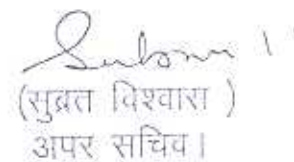 (सुब्रत विश्वास )
अपर सचिव।